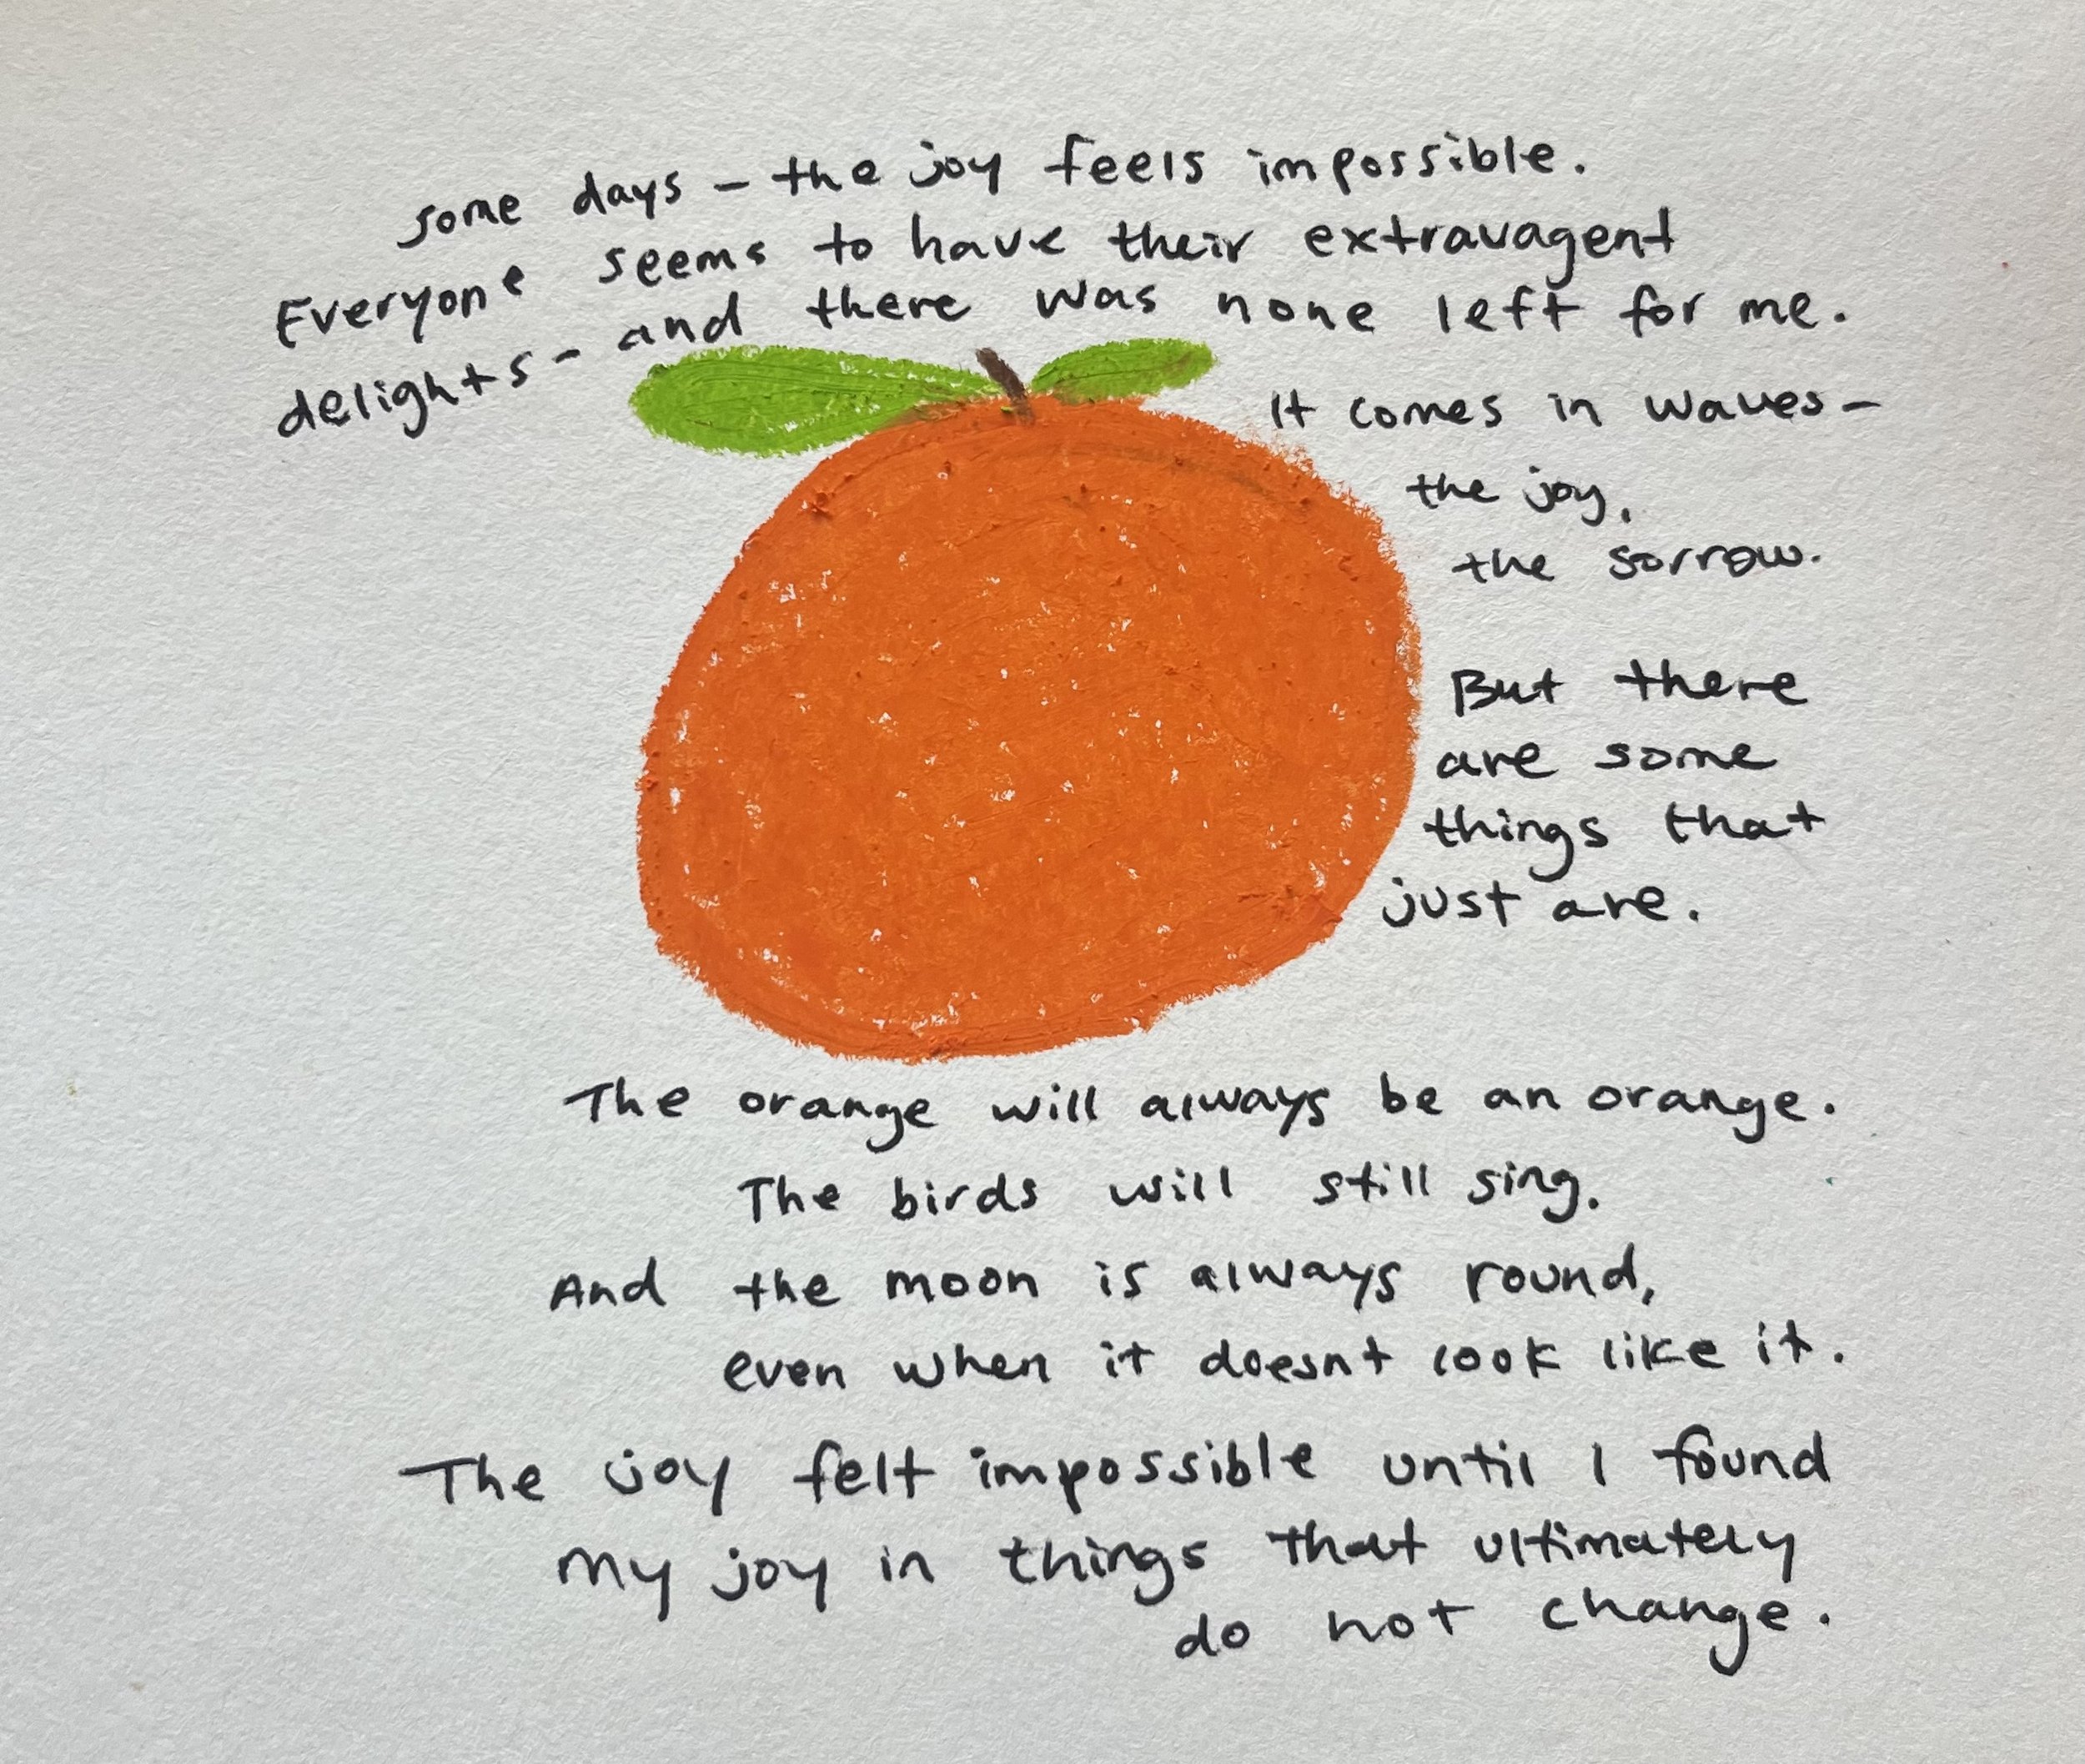 some days - the joy feels impossible.
Everyone seems to have their extravagent
delights - and there was none left for me.
It comes in waves -
the joy,
the sorrow.
But there
are some
things that
just are.
The orange will always be an orange.
The birds will still sing.
And the moon is always round,
even when it doesnt look like it.
The joy felt impossible until I found
my joy in things that ultimately
do not change.